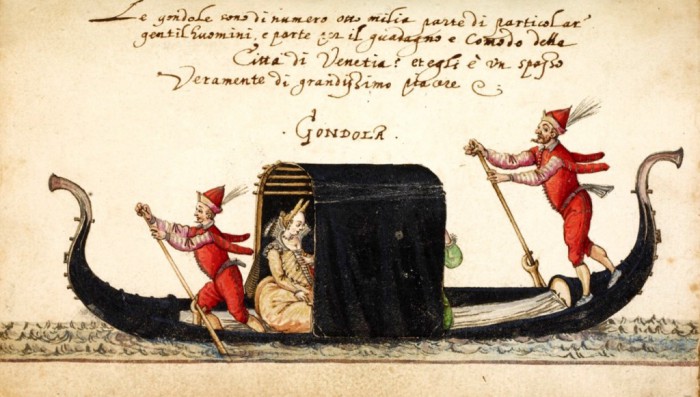 Le gondole sono di numero otto milia parte di particolar
gentilhuomini, e parte per il guadagno e Comodo della
Città di Venetia: et egli è un spasso
Veramente di grandissimo piacere
GONDOLA.